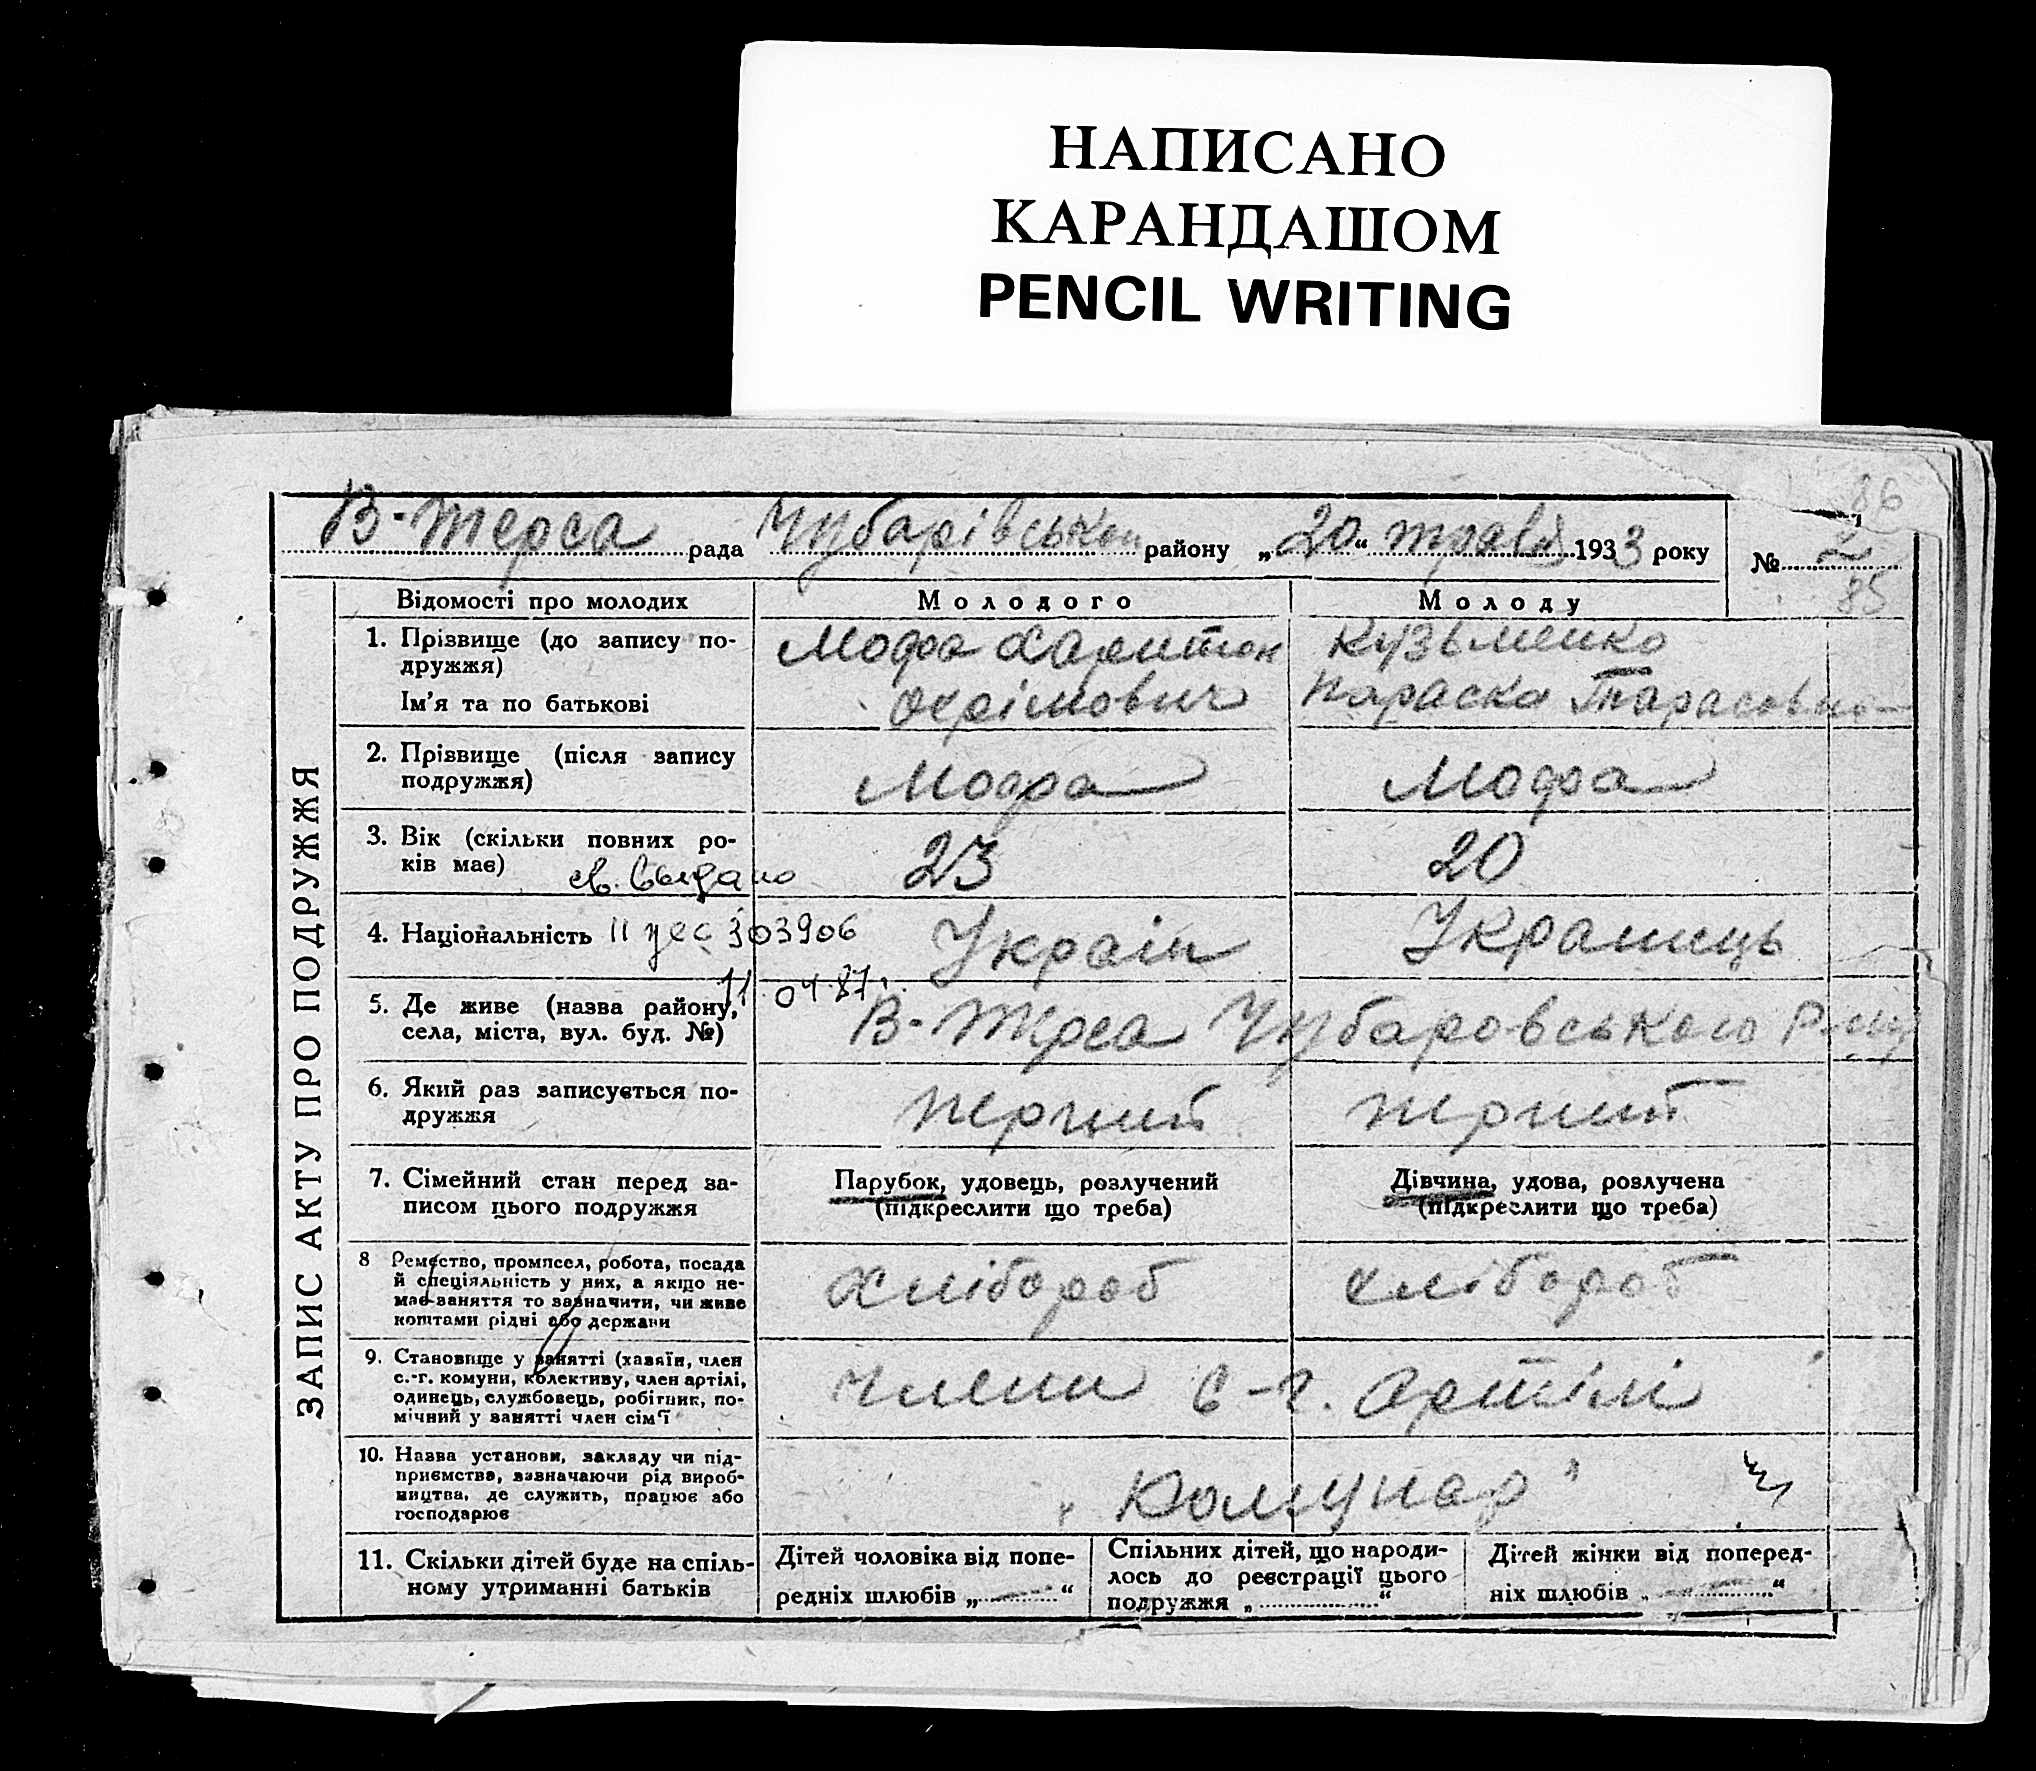 НАПИСАНО
КАРАНДАШОМ
PENCIL WRITING
86
В-Терса рада Чубарівської району „20“ травня 1933 року №
85
ЗАПИС АКТУ ПРО ПОДРУЖЖЯ
Відомості про молодих
Молодого
Молоду
1. Прізвище (до запису по-
дружжя)
Ім'я та по батькові
Мофа Харитон
Охрімович
Кузьменко
Параска Тарасовна
2. Прізвище (після запису
подружжя)
Мофа
Мофа
3. Вік (скільки повних ро-
ків має)
23
20
св. выдано
4. Національність
II уес 303906
Україн
Украинць
11.04.87г.
5. Де живе (назва району,
села, міста, вул. буд. №)
В-Терса Чубаровського
6. Який раз записується по-
дружжя
перший
перший
7. Сімейний стан перед за-
писом цього подружжя
Парубок, удовець, розлучений
(підкреслити що треба)
Дівчина, удова, розлучена
(підкреслити що треба)
8 Ремество, промисел, робота, посада
й спеціяльність у них, а якщо не-
має заняття то зазначити, чи живе
коштами рідні або держави
Хлібороб
хлібороб
9. Становище у занятті (хазяїн, член
с.-г. комуни, колективу, член артілі,
одинець, службовець, робітник, по-
мічний у занятті член сім'ї
члени с-г. артілі
10. Назва установи, закладу чи під-
приємства, зазначаючи рід вироб-
ництва, де служить, працює або
господарює
„Комунар"
11. Скільки дітей буде на спіль-
ному утриманні батьків
Дітей чоловіка від попе-
редніх шлюбів „ “
Спільних дітей, що народи-
лось до реєстрації цього
подружжя „ “
Дітей жінки від поперед-
ніх шлюбів „ “